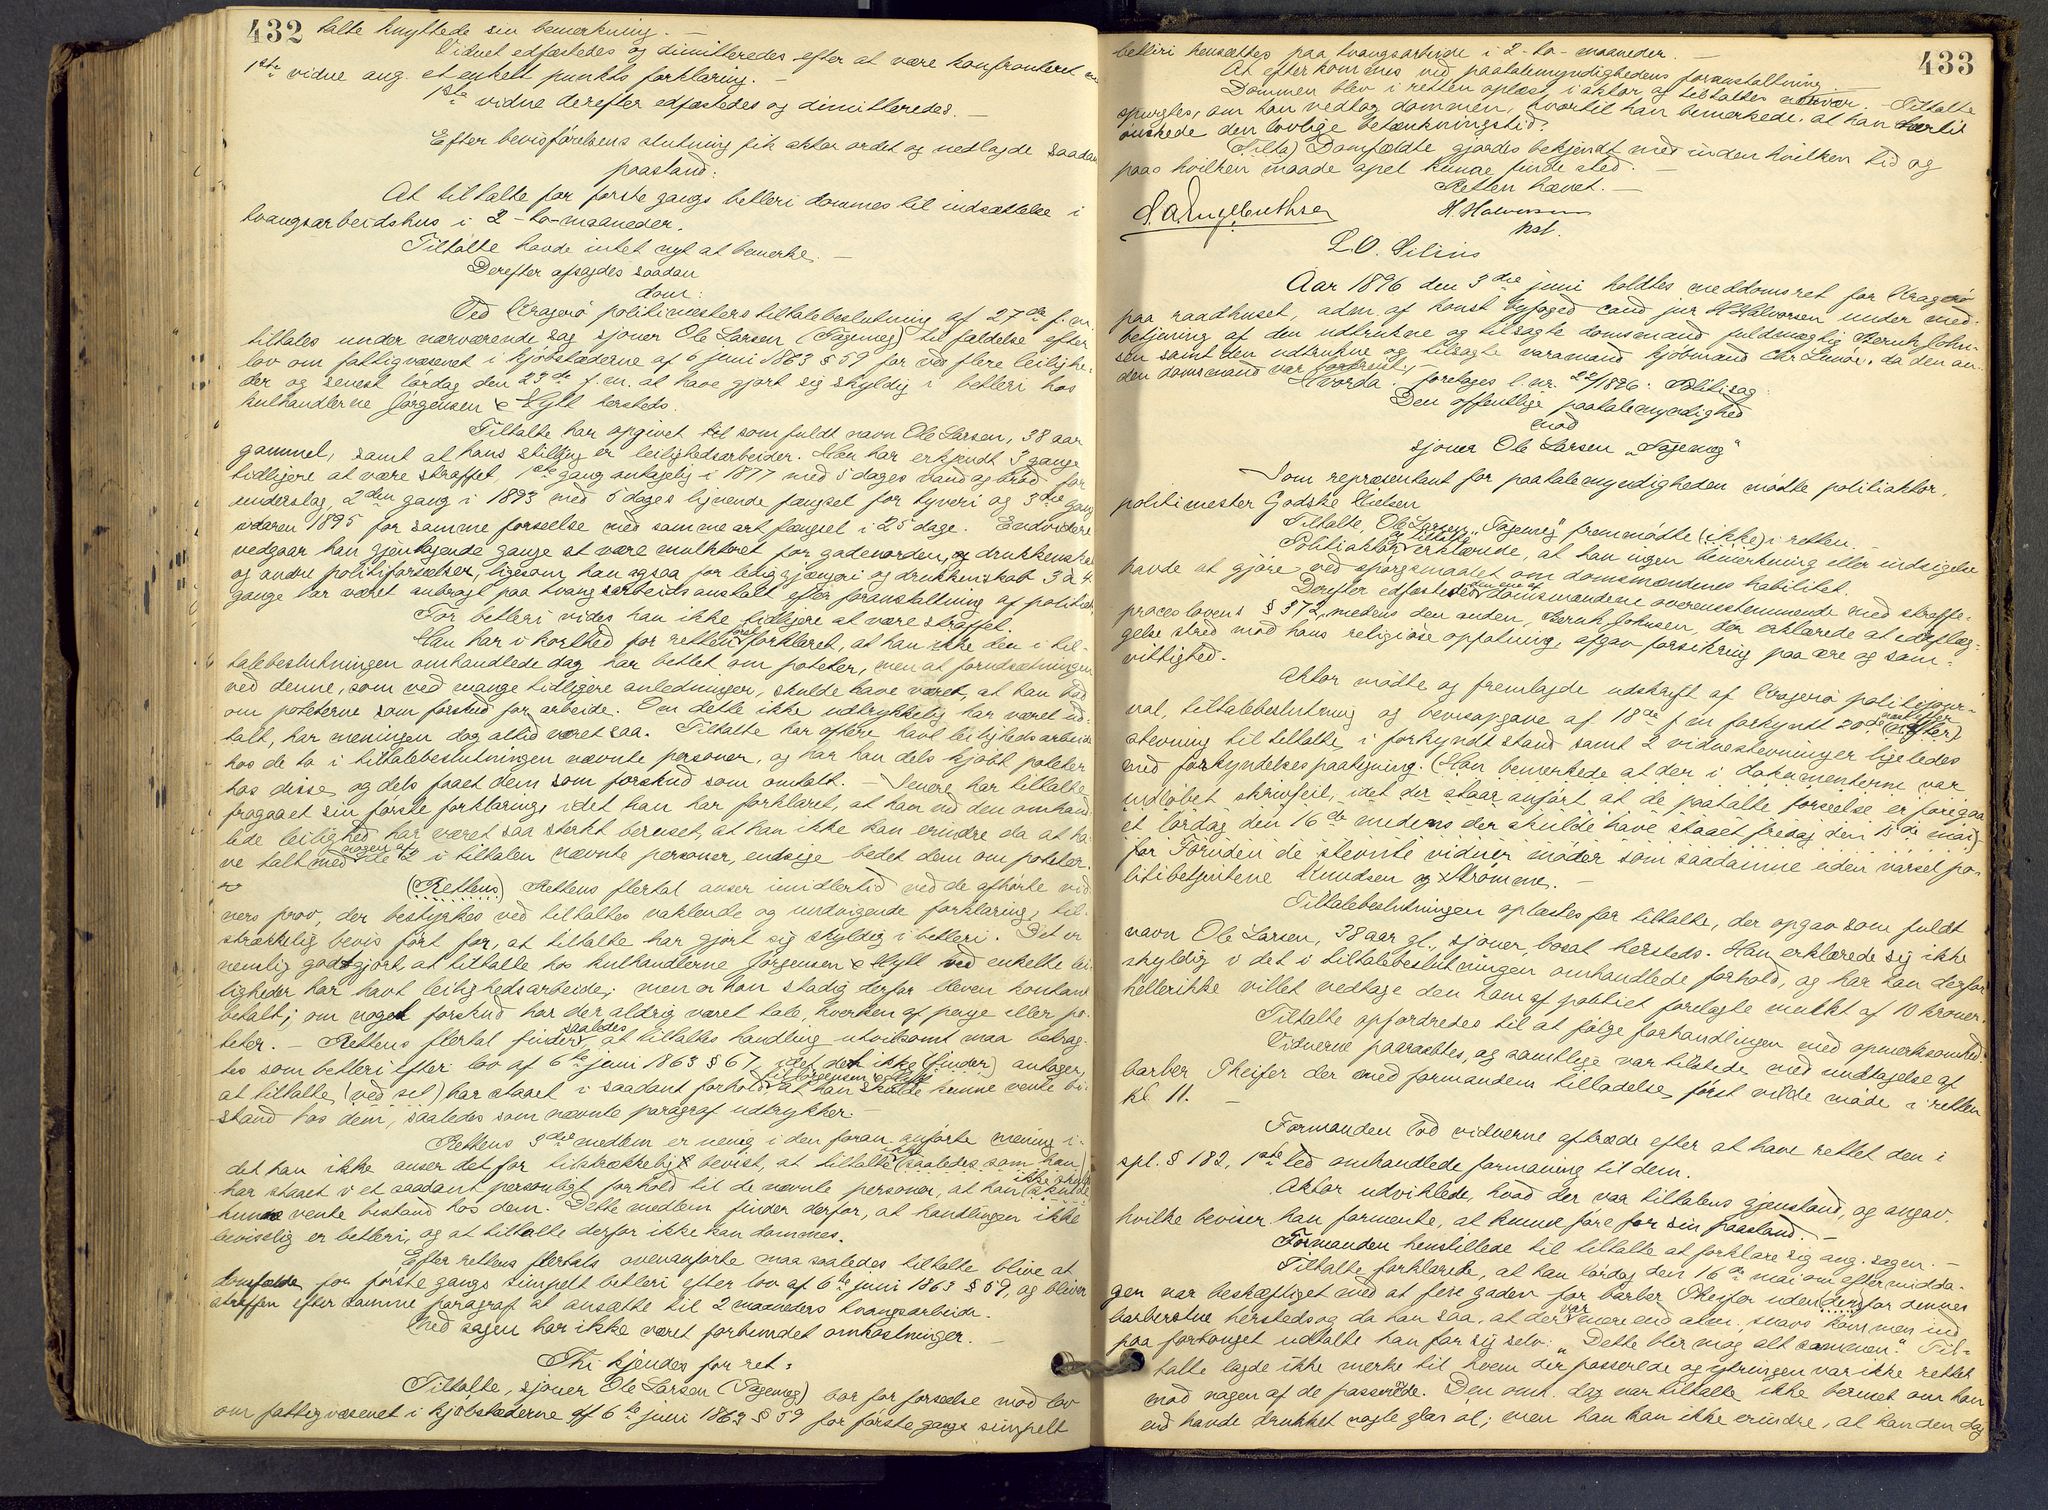 432
talte knyttede sin bemerkning. —
Vidnet edfæstedes og dimitteredes efter at være konfronteret m
1ste vidne ang. et enkelt punkts forklaring. —
1ste vidne derefter edfæstedes og dimitteredes. —
Efter bevisførelsens slutning fik aktor ordet og nedlagde saadan
paastand:
At tiltalte for første gangs betleri dømmes til indsættelse i
tvangsarbeidshus i 2 - to - maaneder.
Tiltalte havde intet nyt at bemerke. —
Derefter afsagdes saadan
dom:
Ved Kragerø politimesters tiltalebeslutning af 27de f. m.
tiltales under nærværende sag sjouer Ole Larsen (Tagemeg) til fældelse efter
lov om fattigvæsenet i kjøbstæderne af 6 juni 1863 § 59 for ved flere leilighe-
der og senest lördag den 23de f. m. at have gjort sig skyldig i betleri hos
kulhandlerne Jørgensen & Hytt hersteds.
Tiltalte har opgivet til som fuldt navn Ole Larsen, 38 aar
gammel, samt at hans stilling er leilighedsarbeider. Han har erkjendt 3 gange
tidligere at være straffet, 1ste gang antagelig i 1877 med 5 dages vand og brød for
underslag, 2den gang i 1893 med 5 dages lignende fængsel for tyveri og 3die gang
vaaren 1895 for samme forseelse med samme art fængsel i 25 dage. Endvidere
vedgaar han gjentagende gange at være mulkteret for gadeuorden, og drukkenskab
og andre politiforseelser, ligesom han ogsaa for ledigjængeri og drukkenskab 3 à 4
gange har været anbragt paa tvangsarbeidsanstalt efter foranstaltning af politiet.
For betleri vides han ikke tidligere at være straffet.
Han har i korthed for retten først forklaret, at han ikke den i til-
talebeslutningen omhandlede dag har betlet om poteter, men at forudsætningen
ved denne, som ved mange tidligere anledninger, skulde have været, at han bad
om poteterne som forskud for arbeide. Om dette ikke udtrykkelig har været ud-
talt, har meningen dog altid været saa. Tiltalte har oftere havt leilighedsarbeide
hos de to i tiltalebeslutningen nævnte personer, og har han dels kjøbt poteter
hos disse og dels faaet dem som forskud som omtalt. — Senere har tiltalte
fragaaet sin første forklaring, idet han har forklaret, at han ved den omhand-
lede leilighed har været saa sterkt beruset, at han ikke kan erindre da at ha-
ve talt med nogen af de 2 i tiltalen nævnte personer, endsige bedet dem om poteter
(Rettens) Rettens flertal anser imidlertid ved de afhørte vid-
ners prov, der bestyrkes ved tiltaltes vaklende og undvigende forklaring, til-
strækkelig bevis ført for, at tiltalte har gjort sig skyldig i betleri. Det er
nemlig godtgjort, at tiltalte hos kulhandlerne Jørgensen & Hytt ved enkelte lei-
ligheder har havt leilighedsarbeide; men er han stadig derfor bleven kontant
betalt; om noget forskud har der aldrig været tale, hverken af penge eller po-
teter. — Rettens flertal finder saaledes, at tiltaltes handling utvilsomt maa betrag-
tes som betleri efter lov af 6te juni 1863 § 67, idet det ikke (finder) antager,
at tiltalte (ved sit) har staaet i saadant forhold til Jørgensen & Hytt at han skulde kunne vente bi-
stand hos dem, saaledes som nævnte paragraf udtrykker. —
Rettens 3die medlem er uenig i den foran anførte mening i-
det han ikke anser det for tilstrækkelig bevist, at tiltalte ikke (saaledes som han)
har staaet i et saadant personligt forhold til de nævnte personer, at han ikke skulde
kunne vente bistand hos dem. Dette medlem finder derfor, at handlingen ikke
beviselig er betleri, og at tiltalte derfor ikke kan dømmes.
Efter rettens flertals ovenanførte maa saaledes tiltalte blive at
domfælde for første gangs simpelt betleri efter lov af 6te juni 1863 § 59, og bliver
straffen efter samme paragraf at ansætte til 2 maaneders tvangsarbeide.
Med sagen har ikke været forbundet omkostninger. —
Thi kjendes for ret:
Tiltalte, sjouer Ole Larsen (Tagemeg) bør for forseelse mod lov
om fattigvæsenet i kjøbstæderne af 6te juni 1863 § 59 for første gangs simpelt
433
betleri hensættes paa tvangsarbeide i 2 - to - maaneder. —
At efterkommes ved paatalemyndighedens foranstaltning.
Dommen blev i retten oplæst i aktor og tiltaltes nærvær. — Tiltalte
spurgtes, om han vedtog dommen, hvortil han bemerkede, at han hertil
ønskede den lovlige betænkningstid.
(Tilta) Domfældte gjordes bekjendt med inden hvilken tid og
paa hvilken maade apel kunde finde sted. —
Retten hævet. —
H. Halvorsen
kst.
L. O. Silius
Aar 1896 den 3die juni holdtes meddomsret for Kragerø
paa raadhuset, adm. af konst. byfoged cand. jur. H. Halvorsen under med-
betjening af den udtrukne og tilsagte domsmand fuldmægtig Bernh. John-
sen samt den udtrukne og tilsagte varamand kjøbmand Chr. Linör, da den an-
den domsmand var forhindret.
Hvorda: foretoges l. nr. 22/1896: Politisag:
Den offentlige paatalemyndighed
mod
sjouer Ole Larsen „Tagemeg"
Som repræsentant for paatalemyndigheden mødte politiaktor,
politimester Godske Nielsen
Tiltalte, Ole Larsen „Tagemeg" fremmødte (ikke) i retten. —
Politiaktor og tiltalte erklærede, at han ingen bemerkning eller indsigelse
havde at gjøre ved spørgsmaalet om domsmændenes habilitet.
Derefter edfæstedes den ene af domsmændene overensstemmende med straffe-
proceslovens § 372, medens den anden, Bernh. Johnsen, der erklærede at edaflæg-
gelse stred mod hans religiøse opfatning, afgav forsikring paa ære og sam-
vittighed.
Aktor mødte og fremlagde udskrift af Kragerø politijour-
nal, tiltalebeslutning og bevisopgave af 18de f. m. forkyndt 20de næstefter (næfter)
stevning til tiltalte i forkyndt stand samt 2 vidnestevninger ligeledes
med forkyndelsespaategning. (Han bemerkede at der i dokumenterne var
indløbet skrivfeil, idet der staar anført at de paatalte forseelse er foregaa
et lørdag den 16de medens der skulde have staaet fredag den 15de mai)
for Foruden de stevnte vidner møder som saadanne uden varsel po-
litibetjentene Knudsen og Strømme. —
Tiltalebeslutningen oplæstes for tiltalte, der opgav som fuldt
navn Ole Larsen, 38 aar gl., sjouer, bosat hersteds. Han erklærede sig ikke
skyldig i det i tiltalebeslutningen omhandlede forhold, og har han derfor
heller ikke villet vedtage den ham af politiet forelagte mulkt af 10 kroner.
Tiltalte opfordredes til at følge forhandlingen med opmerksomhed.
Vidnerne paaraabtes, og samtlige var tilstede med undtagelse af
barber Pheifer der med formandens tilladelse først vilde møde i retten
kl. 11. —
Formanden lod vidnerne aftræde efter at have rettet den i
spl. § 182, 1ste led omhandlede formaning til dem.
Aktor udviklede, hvad der var tiltalens gjenstand, og angav,
hvilke beviser han formente, at kunne føre for sin paastand. —
Formanden henstillede til tiltalte at forklare sig ang. sagen. —
Tiltalte forklarede, at han lørdag den 16de mai om eftermidda-
gen var beskjæftiget med at feie gaden for barber Pheifer uden (der) for dennes
barberstue hersteds og da han saa, at der var mere end alm. snavs kommen ind
paa fortouget udtalte han for sig selv: „Dette blir mog alt sammen". Til-
talte lagde ikke merke til hvem der passerede og ytringen var ikke rettet
mod nogen af de passerende. Den omh. dag var tiltalte ikke beruset om han
end havde drukket nogle glas øl; men han kan ikke erindre, at han den dag